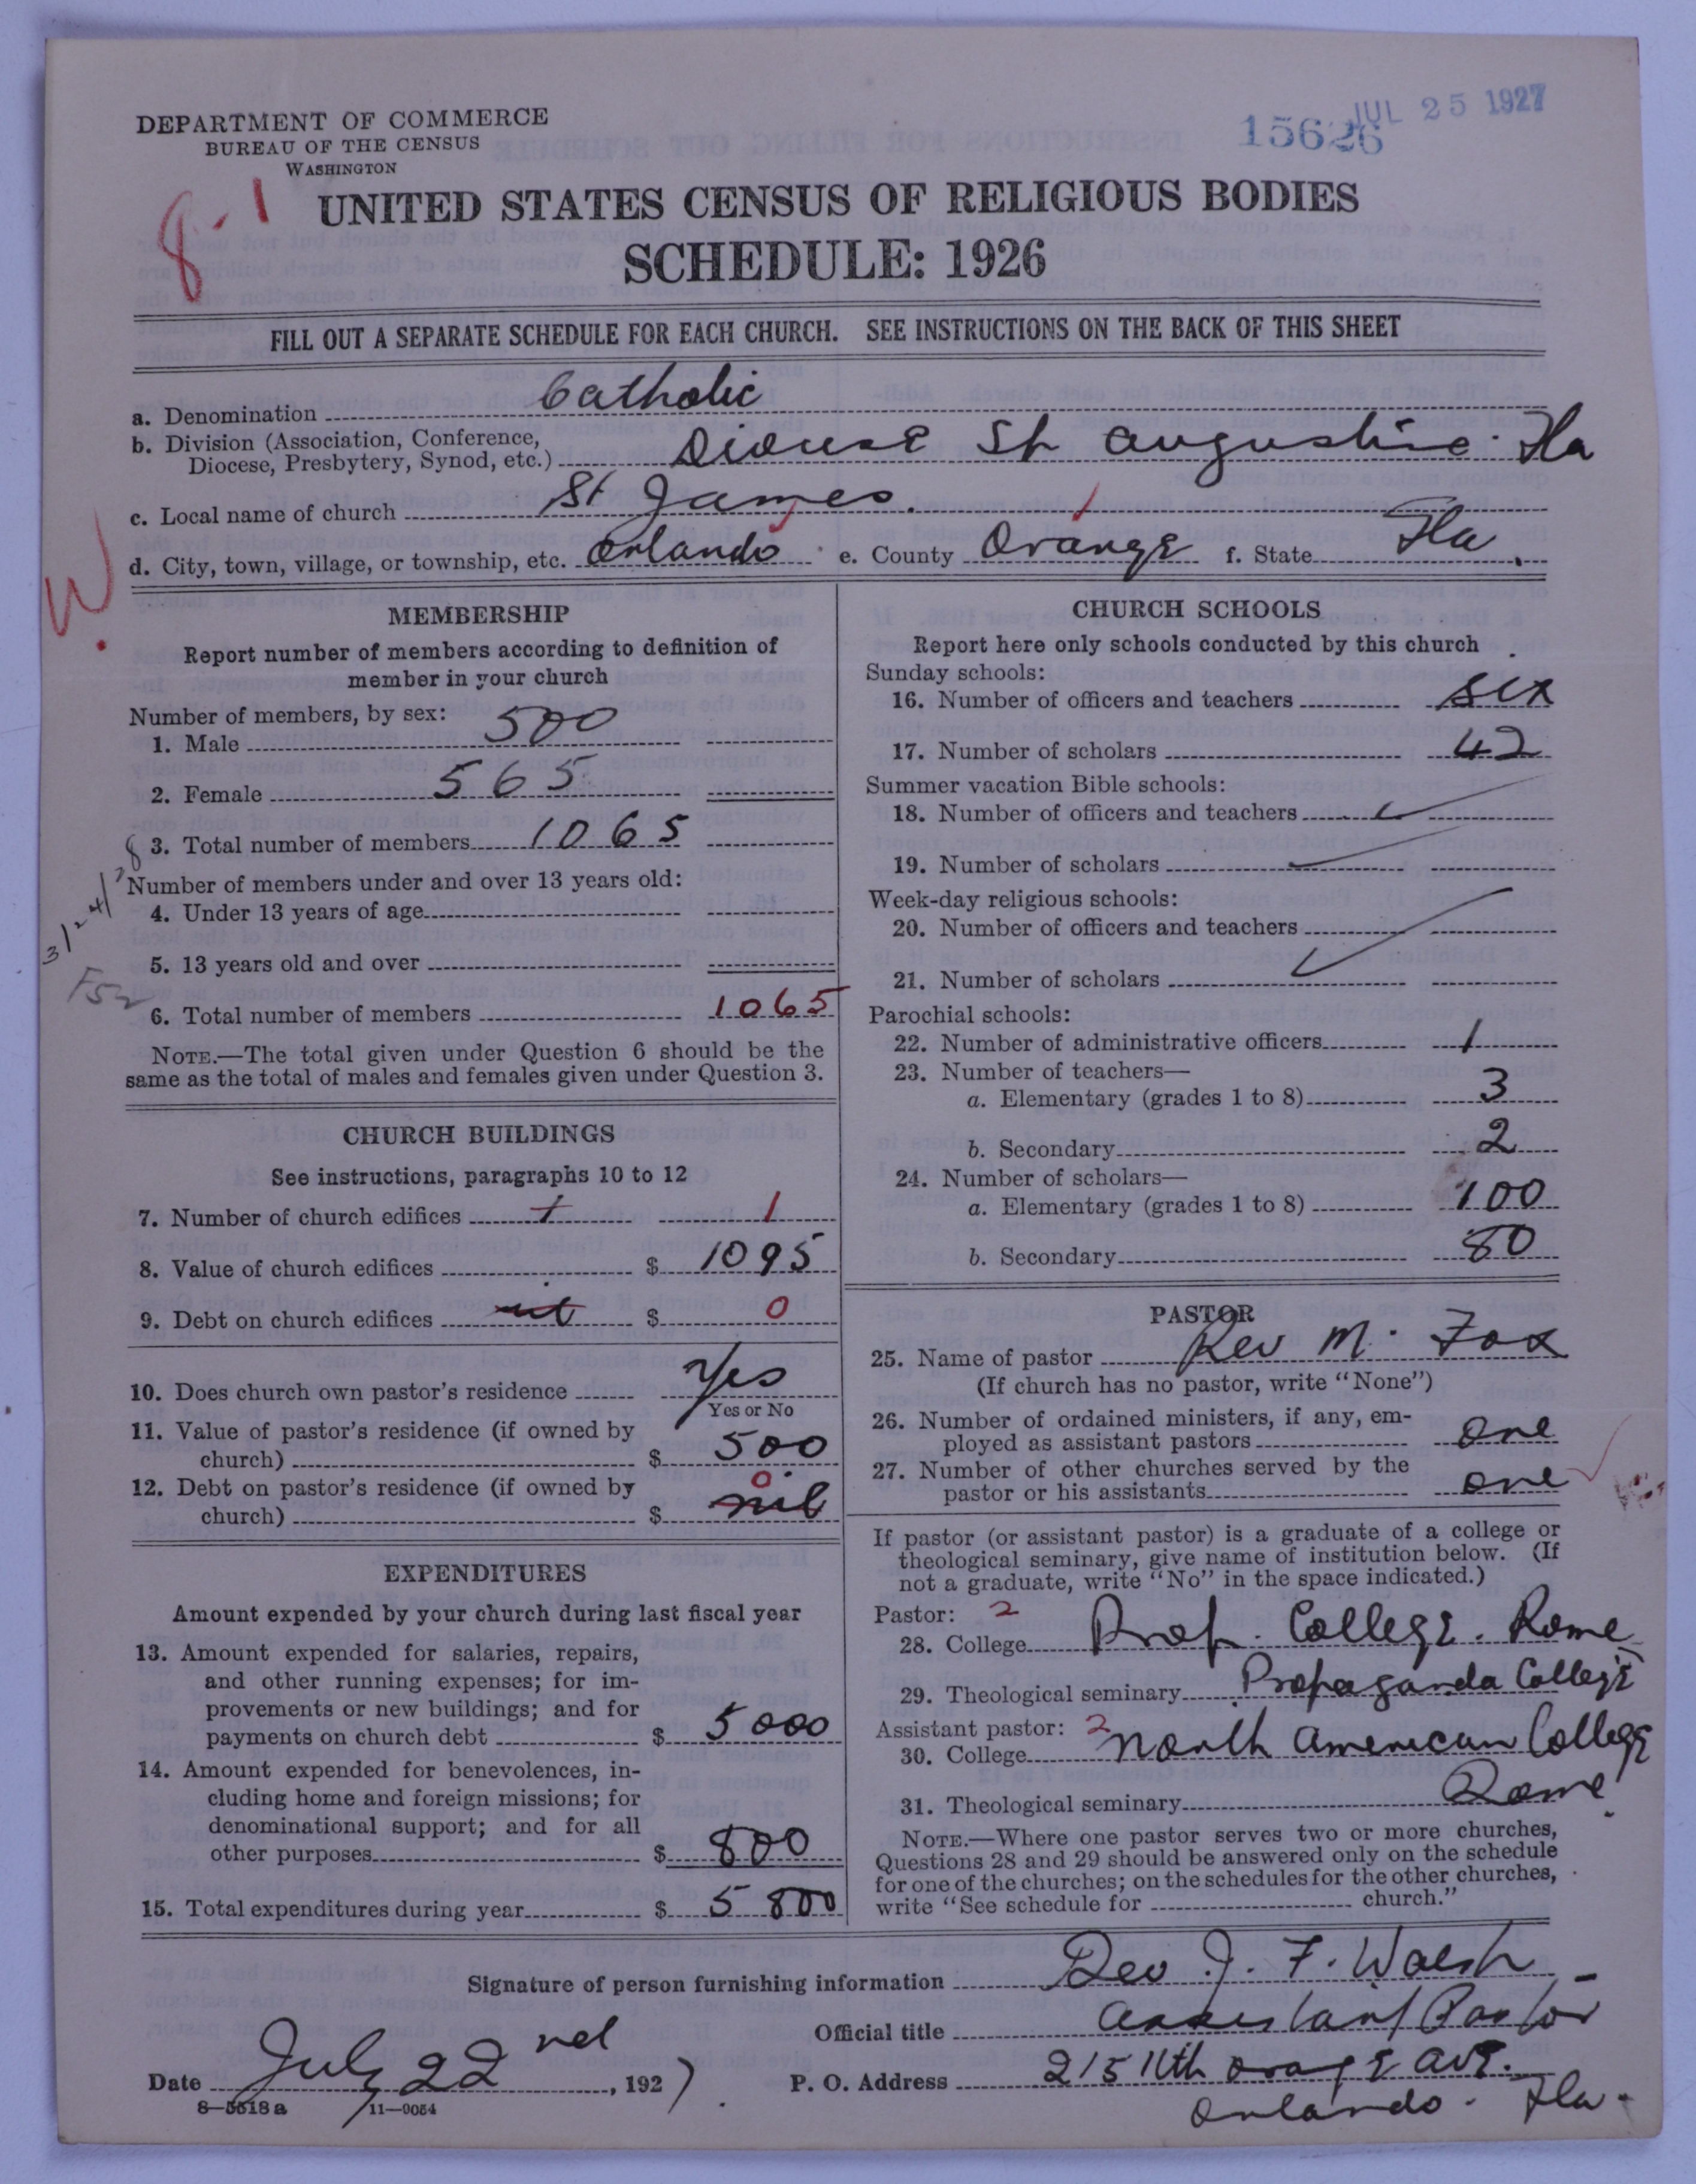 JUL 25 1927
15626
DEPARTMENT OF COMMERCE
BUREAU OF THE CENSUS
WASHINGTON
8-1
UNITED STATES CENSUS OF RELIGIOUS BODIES
SCHEDULE: 1926
FILL OUT A SEPARATE SCHEDULE FOR EACH CHURCH. SEE INSTRUCTIONS ON THE BACK OF THIS SHEET
a. Denomination Catholic
b. Division (Association, Conference,
Diocese, Presbytery, Synod, etc.) Diocese St Augustine. Fla
c. Local name of church St James.
d. City, town, village, or township, etc. Orlando e. County Orange f. State Fla.
W
MEMBERSHIP
Report number of members according to definition of
member in your church
Number of members, by sex:
1. Male 500
2. Female 565
3. Total number of members 1065
Number of members under and over 13 years old:
4. Under 13 years of age
5. 13 years old and over
6. Total number of members 1065
NOTE.—The total given under Question 6 should be the
same as the total of males and females given under Question 3.
3/24/28
CHURCH BUILDINGS
See instructions, paragraphs 10 to 12
7. Number of church edifices 1 1
8. Value of church edifices $ 1095
9. Debt on church edifices $ 0
10. Does church own pastor's residence Yes
Yes or No
11. Value of pastor's residence (if owned by
church) $ 500
12. Debt on pastor's residence (if owned by
church) $ nil 0
EXPENDITURES
Amount expended by your church during last fiscal year
13. Amount expended for salaries, repairs,
and other running expenses; for im-
provements or new buildings; and for
payments on church debt $ 5000
14. Amount expended for benevolences, in-
cluding home and foreign missions; for
denominational support; and for all
other purposes $ 800
15. Total expenditures during year $ 5800
CHURCH SCHOOLS
Report here only schools conducted by this church
Sunday schools:
16. Number of officers and teachers six
17. Number of scholars 42
Summer vacation Bible schools:
18. Number of officers and teachers
19. Number of scholars
Week-day religious schools:
20. Number of officers and teachers
21. Number of scholars
Parochial schools:
22. Number of administrative officers 1
23. Number of teachers—
a. Elementary (grades 1 to 8) 3
b. Secondary 2
24. Number of scholars—
a. Elementary (grades 1 to 8) 100
b. Secondary 80
PASTOR
25. Name of pastor Rev M. Fox
(If church has no pastor, write "None")
26. Number of ordained ministers, if any, em-
ployed as assistant pastors One
27. Number of other churches served by the
pastor or his assistants one
If pastor (or assistant pastor) is a graduate of a college or
theological seminary, give name of institution below. (If
not a graduate, write "No" in the space indicated.)
Pastor: 2
28. College Prop. College. Rome
29. Theological seminary Propaganda College
Assistant pastor: 2
30. College North American College
31. Theological seminary Rome.
NOTE.—Where one pastor serves two or more churches,
Questions 28 and 29 should be answered only on the schedule
for one of the churches; on the schedules for the other churches,
write "See schedule for church."
Signature of person furnishing information Rev J. F. Walsh
Official title Assistant Pastor
Date July 22nd, 1927. P. O. Address 215 Nth Orange Ave.
Orlando. Fla.
8—5518a 11—9054